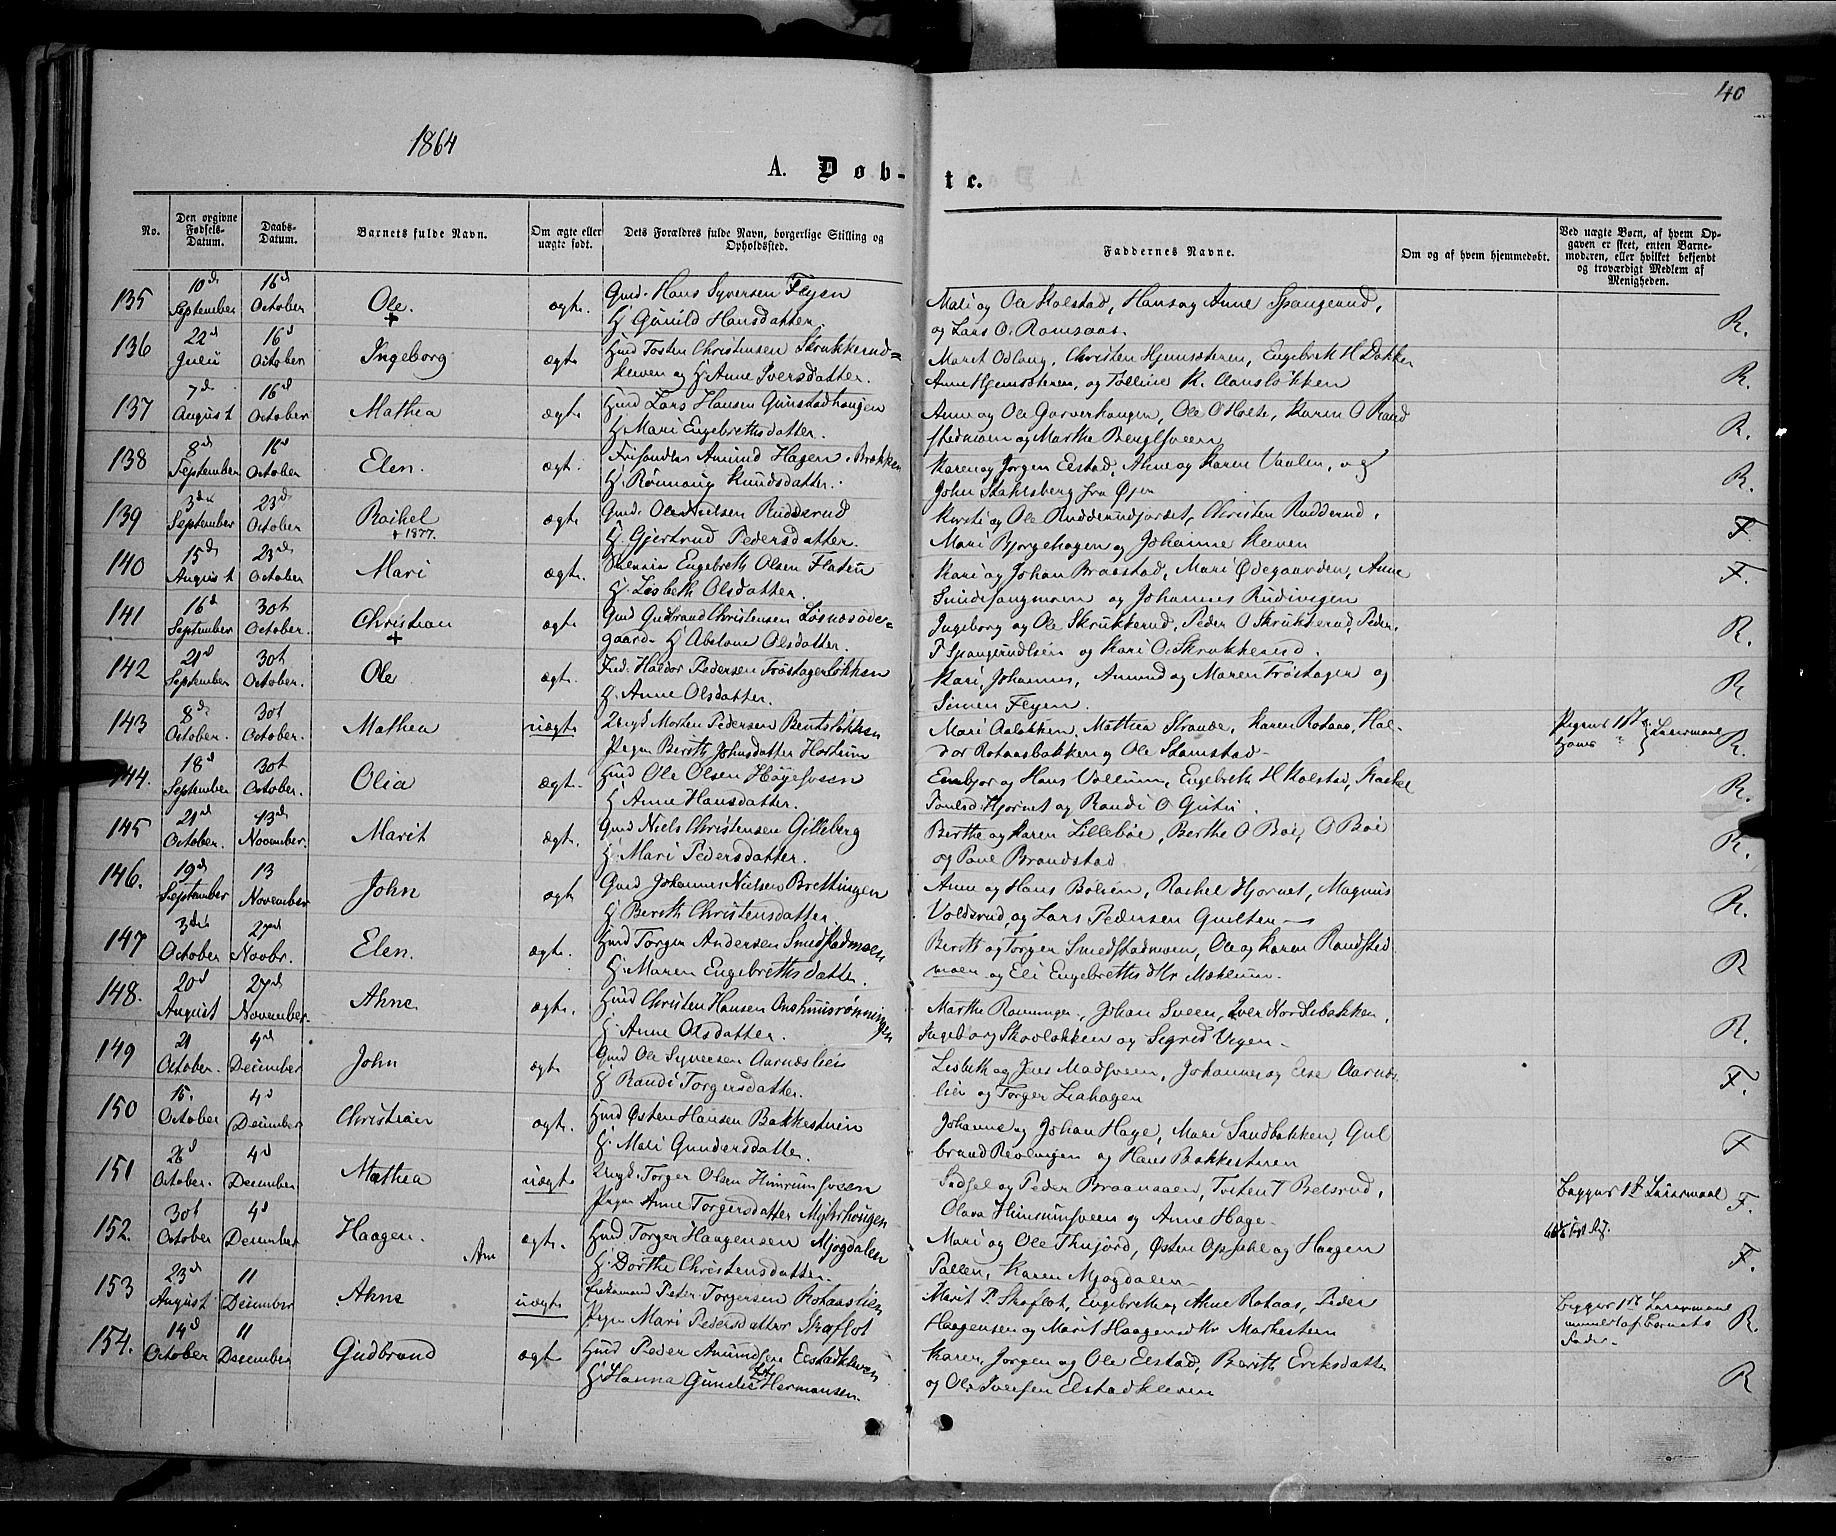 40
1864
A. Døb-te.
No.
Den opgivne Fødsels-Datum.
Daabs-Datum.
Barnets fulde Navn.
Om ægte eller uægte født.
Dets Forældres fulde Navn, borgerlige Stilling og Opholdsted.
Faddernes Navne.
Om og af hvem hjemmedøbt.
Ved uægte Børn, af hvem Opgaven er skeet, enten Barnemoderen, eller hvilket bekjendt og troværdigt Medlem af Menigheden.
135 10d September 16d October Ole. + ægte. Gmd. Hans Syversen Flyen
H. Gunild Hansdatter.
Mali og Ole Kolstad, Hans og Anne Spangrud,
og Lars O. Romsaas. R.
136 22d Juli 16d October Ingeborg ægte Hmd Tosten Christensen Skrukkerud=
kleven og H. Anne Iversdatter.
Marit Odlang, Christen Hjemsæteren, Engebreth H Dokken
Anne Hjemsæteren, og Talline K. Aansløkken R.
137 7d August 16d October Mathea ægte Hmd Lars Hansen Gunstadhaugen
H. Mari Engebrethsdatter.
Anne og Ole Garverhaugen, Ole O Holte, Karen O Rand
stadmoen og Marthe Berglsveen R.
138 8d September 16d October Elen. ægte. Amund Hagen Brækken
H. Rønnaug Knudsdatter.
Karen og Jørgen Elstad, Ahne og Karen Vaalen, og
John Stahlsberg fra Øyer R.
139 3die September 23d October Rachel + 1877. ægte Gmd. Ole Nielsen Rudderud
H. Gjertrud Pedersdatter.
Kirsti og Ole Rudderudjordet, Christen Rudderud,
Mari Bjørgehagen og Johanne Kleven F.
140 15d August 23d October Mari ægte. Engebreth Olsen Flaten
H. Lisbeth Olsdatter.
Kari og Johan Braastad, Mari Ødegaarden, Anne
og Johannes Rudivigen F.
141 16d September 30t October. Christian + ægte Gmd Gudbrand Christensen Losnæsøde=
gaard. H. Abelone Olsdatter.
Ingeborg og Ole Skrukkerud, Peder O Skrukkerud, Peder
og Kari O. Skrukkerud. R.
142 21d September 30t October. Ole ægte. Ind. Haldor Pedersen Frøstagerløkken
H. Anne Olsdatter.
Kari, Johannes, Amund og Maren Frøstager og
Simen Flyen. R
143 8d October. 30t October. Mathea uægte Ungk Morten Pedersen Bentsløkken
Pigen Berith Johnsdatter
Mari Aaløkken, Mathea Strande, Karen Rotaas, Hal-
dor Rotaasbakken og Ole Stamstad.
Pigens 1ste Leiermaal R.
144. 18d September 30t October. Olia ægte. Hmd Ole Olsen Høgefossen
H. Anne Hansdatter.
Embjør og Hans Vollum, Engebreth H Kolstad,
Hjornet og Randi O R.
145 21d October. 13d November. Marit ægte. Gmd Niels Christensen Gilleberg
H. Mari Pedersdatter.
Berthe og Karen Lillebøe, Berthe O Bøe, O Bøe
og Paul Brandstad R.
146. 19d September 13 November John ægte Gmd Johannes Nielsen Brettingen
H. Berith Christensdatter
Anne og Hans Bølien, Rachel Hjornet, Magnus
Voldsrud, og Lars Pedersen R.
147 3die October 27d Novbr. Elen. ægte. Hmd Torger Andersen Smedstadmoen
H. Maren Engebrethsdatter.
Berith og Torger Smedstadmoen, Ole og Karen Randsted
moen og Eli Engebrethsdtr Mæhlum. R
148. 20d August 27d November. Ahne ægte. Hmd Christen Hansen
H. Anne Olsdatter.
Marthe Rønningen, Johan Sveen, Iver Nordlibakken,
Ingeborg Skovløkken og Sigrid R.
149 21 October. 4d December John ægte Gmd Ole Syversen Aarnæslien
H. Randi Torgersdatter.
Lisbeth og Jens Madsveen, Johannes og Else Aarnæs-
lien og Torger Liahagen F.
150 15. October 4d December Christian ægte. Hmd Østen Hansen Bakkestuen
H. Mari Gundersdatter.
Johanne og Johan Hage, Mari Sandbakken, Gul
brand og Hans Bakkestuen F
151 26d October. 4d December Mathea uægte Ungk. Torger Olsen
Pigen Anne Torgersdatter Myhrhougen
og Peder Braanaalen, Torsten T Belsrud,
Olava og Anne Hage.
Begges 1ste Leiermaal F.
152. 30t October 4d December Haagen. ægte. Hmd Torger Haagensen Mjogdalen
H. Dorthe Christensdatter.
Mari og Ole Thujord, Østen Opsahl og Haagen
Pallen, Karen Mjogdalen F.
153 23d August 11 December Ahne uægte Enkemand Peder Torgersen Rotaaslien
Pigen Mari Pedersdatter Skaflot
Marit P. Skaflot, Engebreth og Ahne Rotaas, Peder
Haagensen og Marit Haagensdtr
Begges 1ste Leiermaal
anmeldt af Barnets
Fader. R.
154. 14d October 11 December Gudbrand ægte Hmd Peder Amundsen Elstadkleven
H. Hanna Hermansen.
Karen, Jørgen og Ole Elstad, Berith Eriksdatter
og Ole Iversen Elstadkleven R